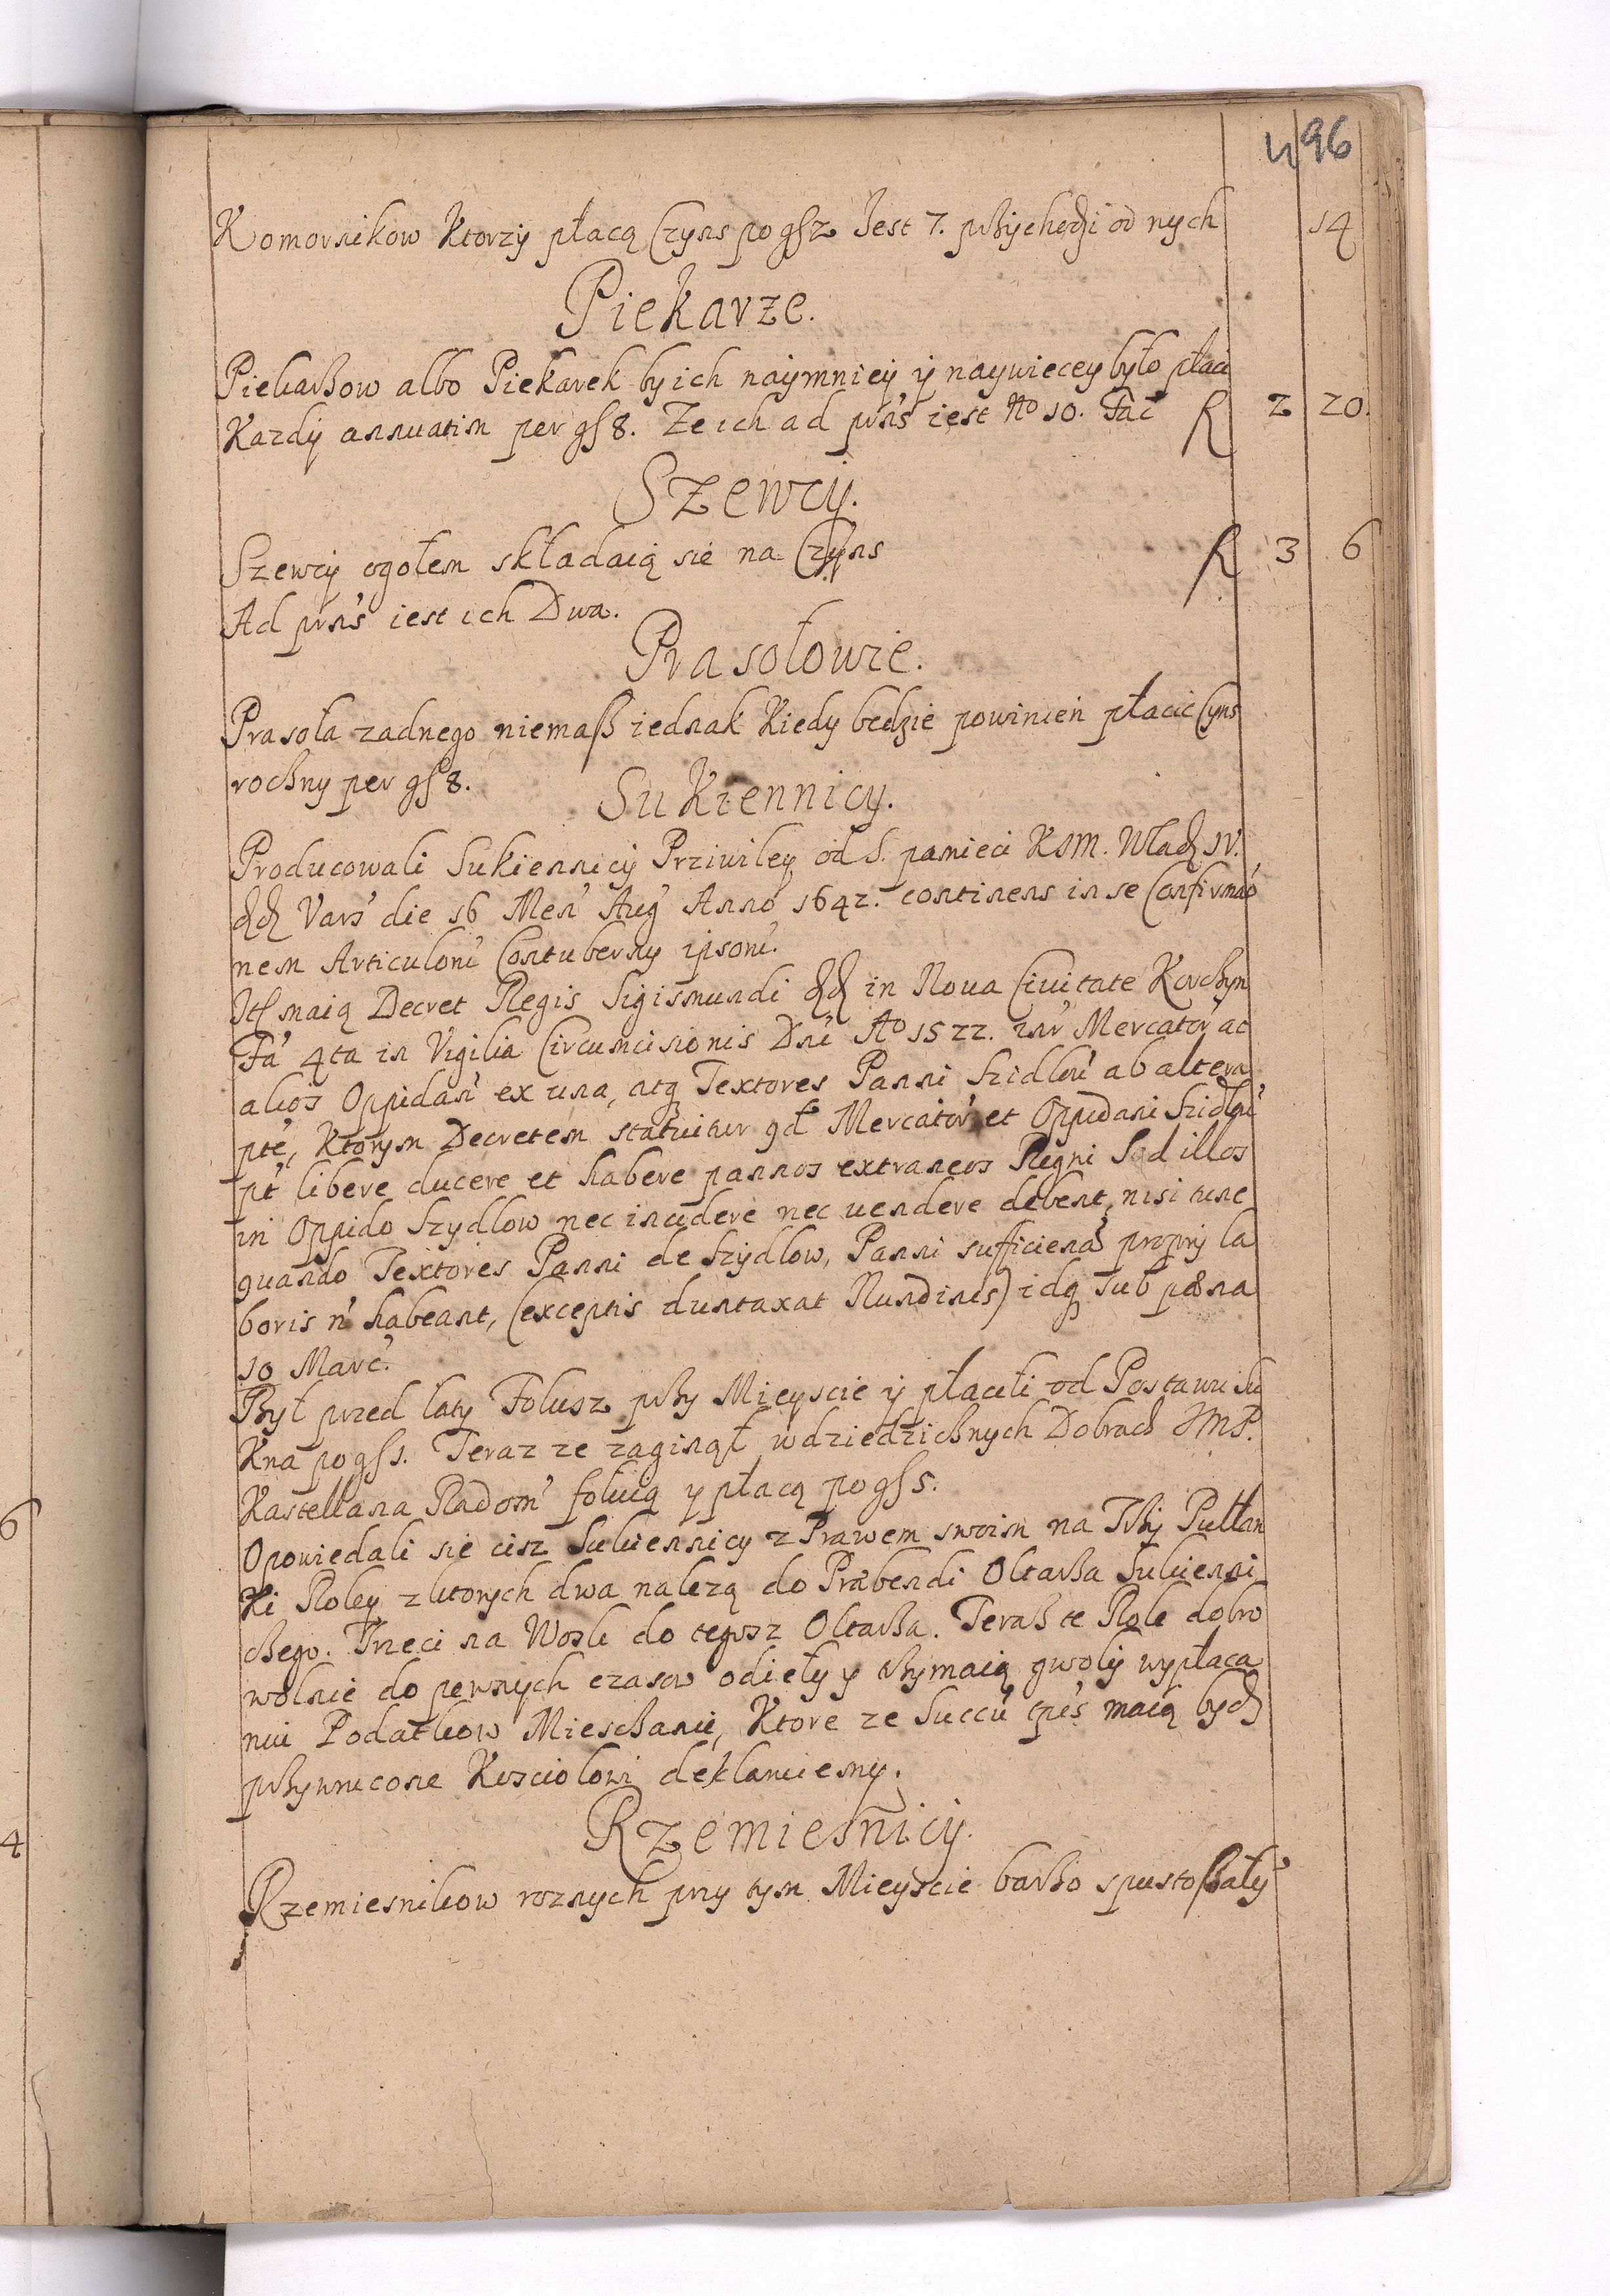 496
Komornikow Ktorzÿ płacą Czÿns po gſ 2 Jest 7. pßÿchodzi od nych 14
Piekarze.
Piekarßow albo Piekarek by ich naÿmnieÿ ÿ naywieceÿ było płaci
Kazdÿ annuatim per gſ 8. Ze ich ad pńs iest No 10. Fać f 2 20.
Szewcÿ.
Szewcÿ ogołem składaią sie na Czÿns f 3 6
Ad pńs iest ich Dwa.
Prasołowie.
Prasoła zadnego niemaß iednak Kiedy będzie powinien płacic Czÿns
roczny per gſ 8.
Sukiennicy.
Producowali Sukiennicÿ Prziwileÿ od S. pamieci KJM. Wład IV.
dd Vars' die 16 Men' Aug' Anno 1642. continens in se Confirmao
nem Articulorú Contuberny ipsorú.
Itt maią Decret Regis Sigismundi dd in Nova Civitate Korchyn
Fa' 4ta in Vigilia Circumcisionis Dni Ao 1522. inr' Mercator' ac
alios Oppidan' ex una, atq Textores Panni Szidlou' ab altera
pte, Ktorym Decretem statuitur qd Mercator' et Oppidani Szidlou'
pt' libere ducere et habere pannos extraneos Regni Sed illos
in Oppido Szydlow nec incidere nec uendere debent, nisi tunc
quando Textores Panni de Szÿdlow, Panni sufficiend proprÿ la
boris n' habeant, (exceptis duntaxat Nundinis) idq sub pœna
10 Marc'.
Był przed laty Folusz pßy Mieyscie ÿ płacili od Postawu Su
Kna po gſ 1. Teraz ze zaginął w dziedzicznych Dobrach JMP.
Kastellana Radom' foluią y płacą po gſ 5.
Opowiedali sie cisz Sukiennicy z Prawem swoim na Tßÿ Pułłan
Ki Roley z ktorych dwa nalezą do Præbendi Oltarßa Sukienni
czego. Trzeci na Wosk do tegosz Oltarßa. Teraß te Role dobro
wolnie do pewnych czasow odieły y tßymaią gwoly wypłaca
niu Podatkow Mieszczanie, Ktore ze Succu' tpis maią bydz
pßywrucone Kosciolowi deklarueimy.
Rzemiesnicÿ.
Rzemiesnikow roznych przy tym Mieyscie barßo spustoßałÿ
6
4